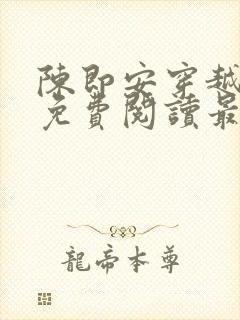 陳即安穿越
免費閱讀最
龍帝本尊